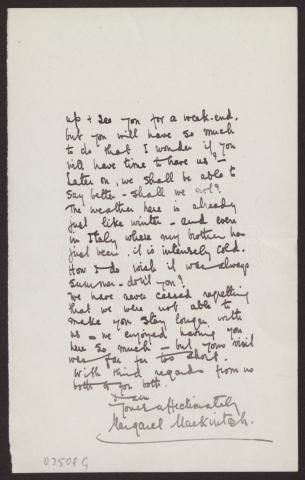 up + see you for a week-end.
but you will have so much
to do that I wonder if you
will have time to have us? -
Later on, we shall be able to
say better - shall we not?
The weather here is already
just like winter - and even
in Italy where my brother has
just been, it is intensely cold.
How I do wish it was always
summer - don't you?
We have never ceased regretting
that we were not able to
make you stay longer with
us - we enjoyed having you
here so much - but your visit
was far far too short.
With kind regards from us
both to you both.
I am
Yours affectionately
Margaret Mackintosh.
0250FG